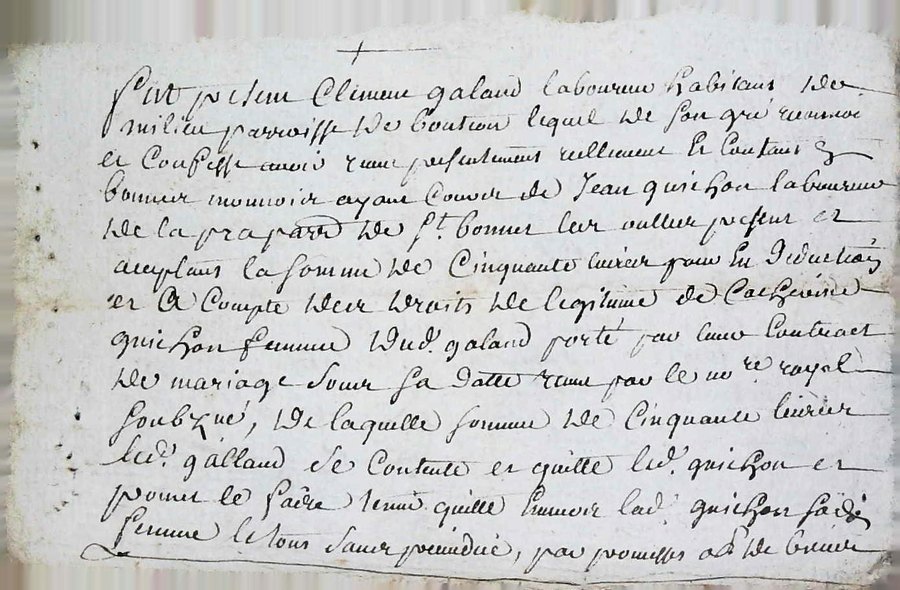 fut present Clement galand laboureur habitant de
milieu parroisse de boution lequel de son gré reconnoi
et Confesse avoir reçeu presentement reellement et Contant En
bonnes monnoie ayant Cours de Jean guichon laboureur
de la parroisse de St. bonnet les oulles present et
acceptant la somme de Cinquante livres pour En deduction
et a Compte des droits de legitime de Catherine
guichon femme dud. galand porté par leur Contract
de mariage sous sa datte reçeu par le nore royal
soubzné, de laquelle somme de Cinquante livres
led. galland se Contente et quitte led. guichon et
promet le faire tenir quitte Envers lad. guichon sad.
femme le tous sans prejudice, par promesses de biens